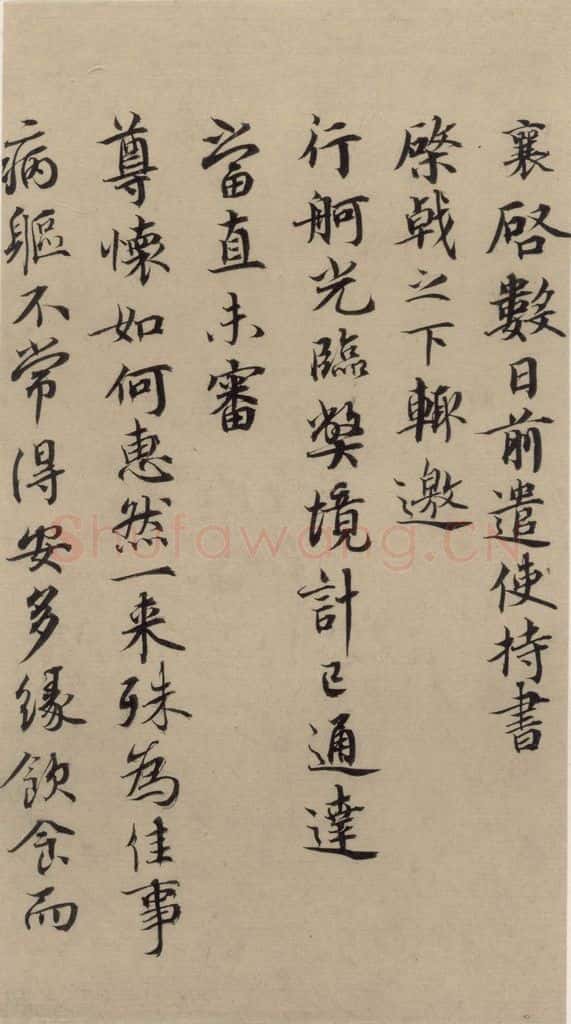 襄啓數日前遣使持書
棨戟之下輙邀
行舸光臨弊境計已通達
當直未審
尊懷如何惠然一来殊為佳事
病軀不常得安多緣飲食而
Shufawang.CN